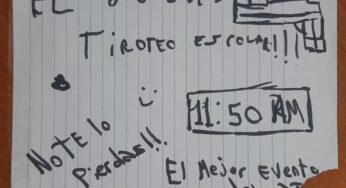 EL
TIROTEO ESCOLAR!!!
11:50 AM
NO TE lo
pierdas!!!
El Mejor Evento